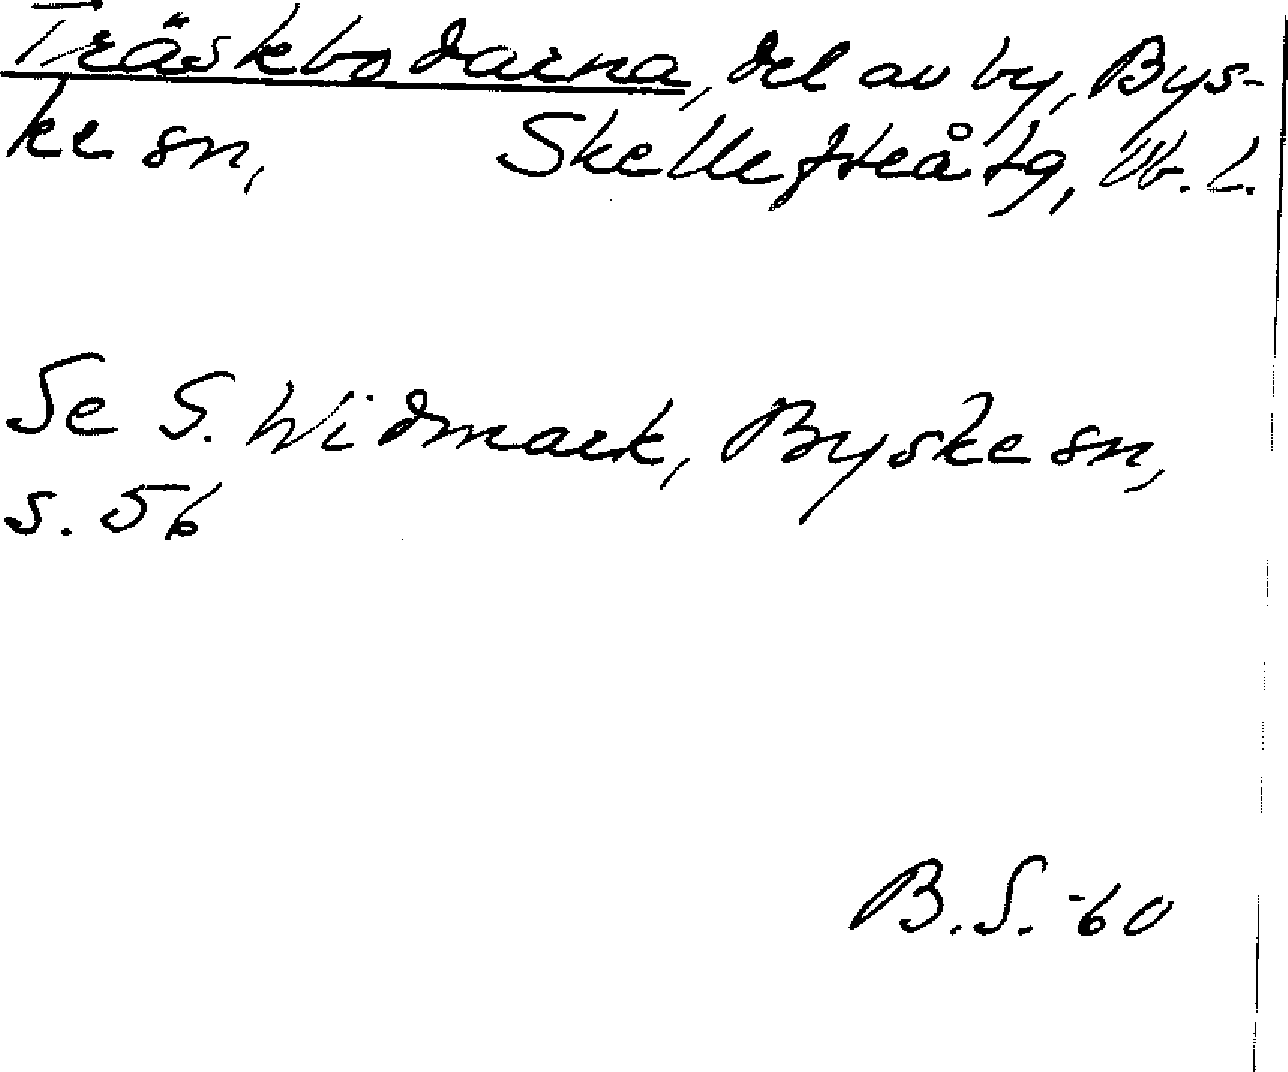 Träskbodarna, del av by, Bys-
ke sn, Skellefteå tg, Vb. l.
Se S. Widmark, Byske sn,
s. 56
B.S. -60